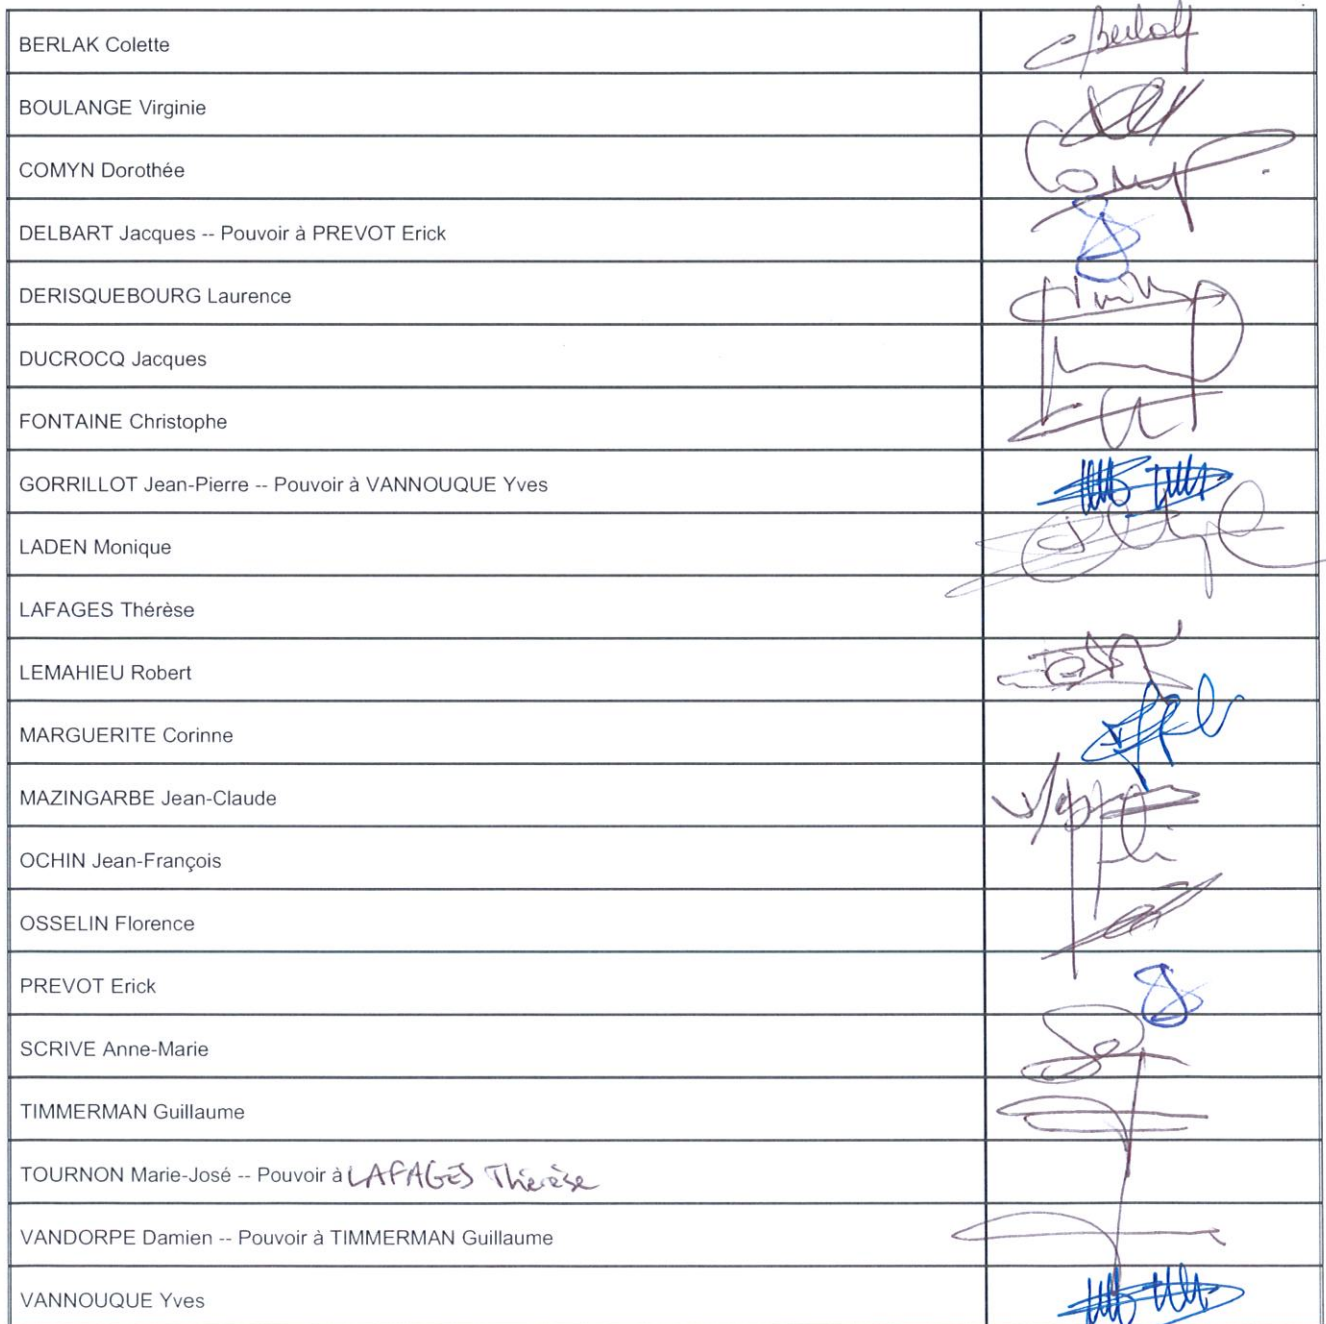 BERLAK Colette
BOULANGE Virginie
COMYN Dorothée
DELBART Jacques -- Pouvoir à PREVOT Erick
DERISQUEBOURG Laurence
DUCROCQ Jacques
FONTAINE Christophe
GORRILLOT Jean-Pierre -- Pouvoir à VANNOUQUE Yves
LADEN Monique
LAFAGES Thérèse
LEMAHIEU Robert
MARGUERITE Corinne
MAZINGARBE Jean-Claude
OCHIN Jean-François
OSSELIN Florence
PREVOT Erick
SCRIVE Anne-Marie
TIMMERMAN Guillaume
TOURNON Marie-José -- Pouvoir à LAFAGES Thérèse
VANDORPE Damien -- Pouvoir à TIMMERMAN Guillaume
VANNOUQUE Yves